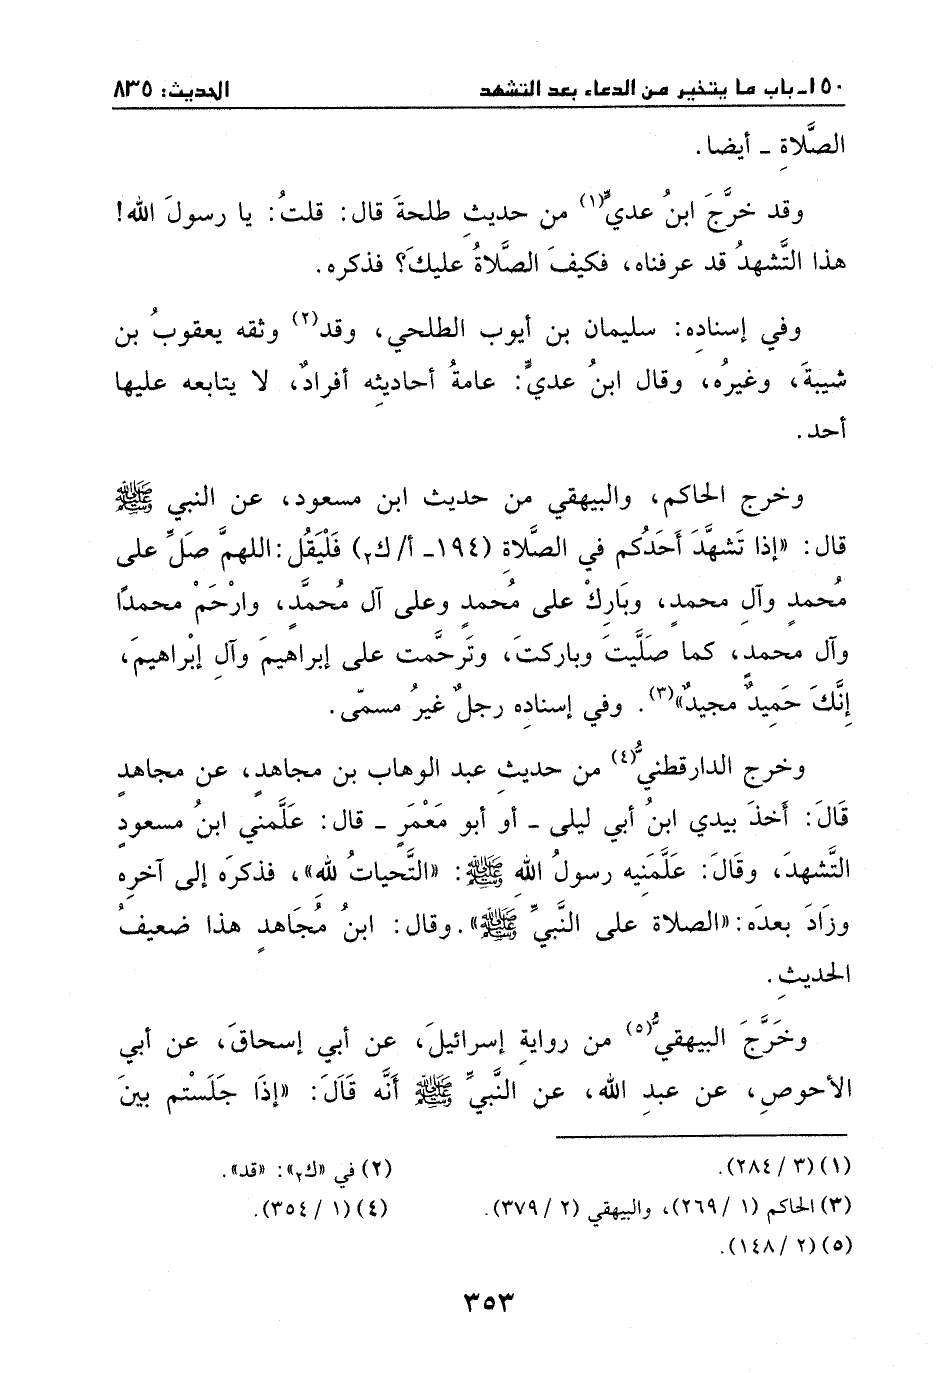 ١٥٠ـ باب ما يتخير من الدعاء بعد التشهد الحديث: ٨٣٥
الصَّلاةِ ـ أيضا.
وقد خرَّجَ ابنُ عديٍّ(١) من حديثِ طلحةَ قال: قلتُ: يا رسولَ الله!
هذا التَّشهدُ قد عرفناه، فكيفَ الصَّلاةُ عليكَ؟ فذكره.
وفي إسنادِه: سليمان بن أيوب الطلحي، وقد(٢) وثقه يعقوبُ بن
شيبةَ، وغيرُه، وقال ابنُ عديٍّ: عامةُ أحاديثِه أفرادٌ، لا يتابعه عليها
أحد.
وخرج الحاكم، والبيهقي من حديث ابن مسعود، عن النبي ﷺ
قال: «إذا تَشهَّدَ أَحَدُكم في الصَّلاةِ (١٩٤ـ أ/ ك٢) فَلْيَقُل: اللهمَّ صَلِّ على
مُحمدٍ وآلِ محمدٍ، وبَارِكْ على مُحمدٍ وعلى آل مُحمَّدٍ، وارْحَمْ محمدًا
وآل محمدٍ، كما صَلَّيتَ وباركتَ، وتَرحَّمت على إبراهيمَ وآلِ إبْراهيمَ،
إنَّكَ حَمِيدٌ مجيدٌ»(٣). وفي إسنادِه رجلٌ غيرُ مسمّى.
وخرج الدارقطنيُّ(٤) من حديثِ عبد الوهاب بن مجاهدٍ، عن مجاهدٍ
قَالَ: أَخذَ بيدي ابنُ أبي ليلى ـ أو أبو مَعْمَرٍ ـ قال: علَّمني ابنُ مسعودٍ
التَّشهدَ، وقَالَ: علَّمَنِيه رسولُ اللهِ ﷺ: «التَّحياتُ للهِ»، فذكرَه إلى آخرِه
وزَادَ بعدَه: «الصلاة على النَّبيِّ ﷺ». وقال: ابنُ مُجَاهدٍ هذا ضعيفُ
الحديثِ.
وخَرَّجَ البيهقيُّ(٥) من روايةِ إسرائيلَ، عن أبي إسحاقَ، عن أبي
الأحوصِ، عن عبدِ الله، عن النَّبيِّ ﷺ أنَّه قَالَ: «إذَا جَلَسْتم بينَ
(١) (٣/ ٢٨٤). (٢) في «ك٢»: «قد».
(٣) الحاكم (١/ ٢٦٩)، والبيهقي (٢/ ٣٧٩). (٤) (١/ ٣٥٤).
(٥) (٢/ ١٤٨).
٣٥٣